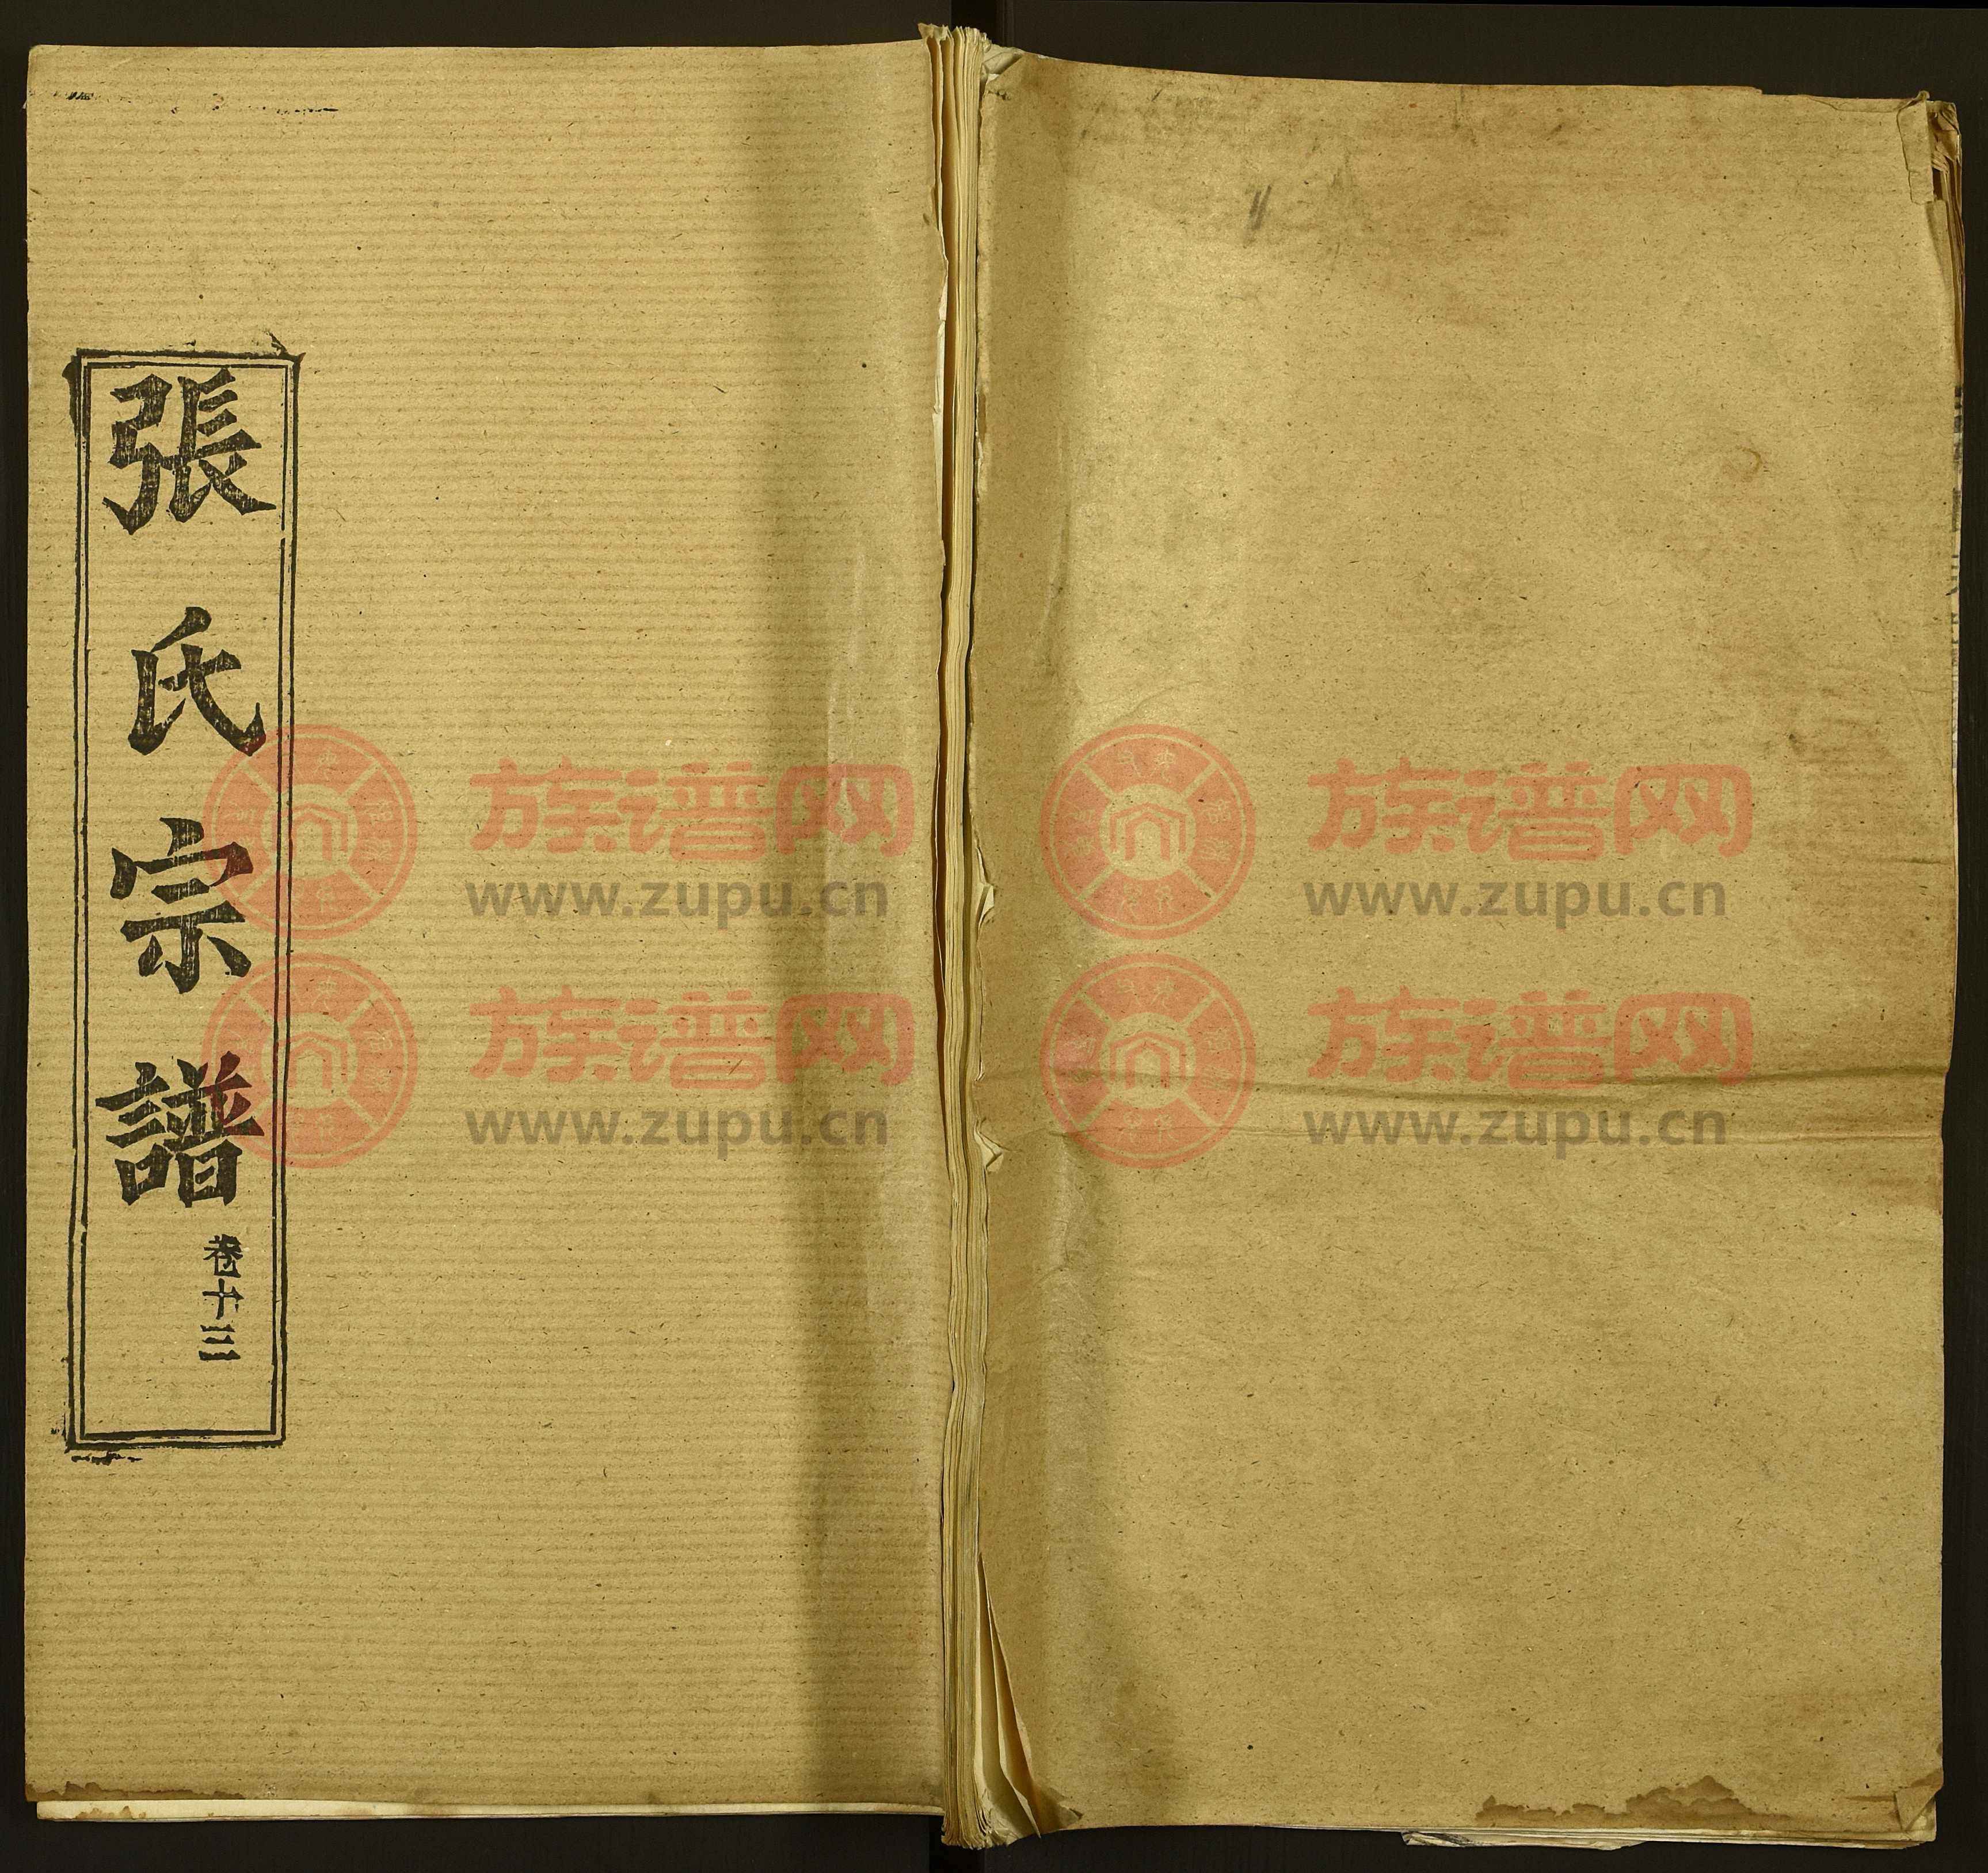 張氏宗譜
卷十三
族谱网
www.zupu.cn
族谱网
www.zupu.cn
族谱网
www.zupu.cn
族谱网
www.zupu.cn